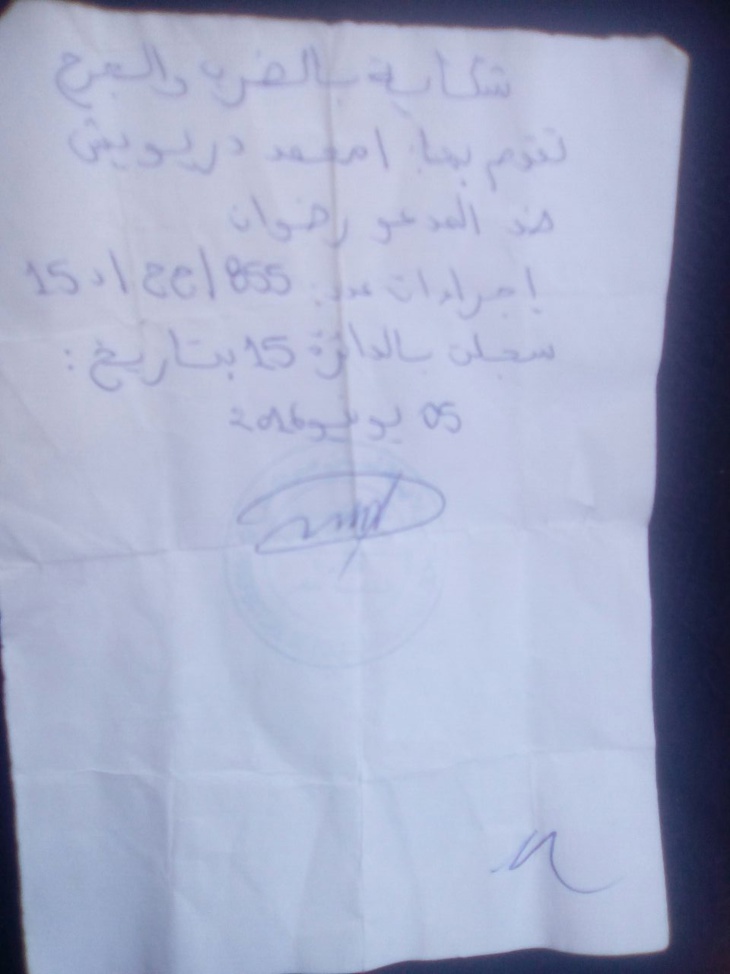 شكاية بالضرب والجرح
تقدم بها: امحمد درويش
ضد المدعو رضوان
إجراءات عدد: 855/ج ج/د 15
سجلت بالدائرة 15 بتاريخ:
05 يونيو 2016